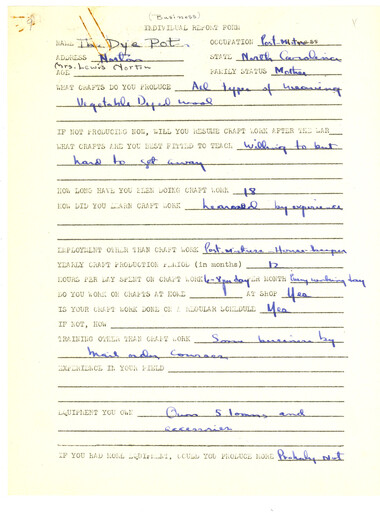 (Business)
INDIVIDUAL REPORT FORM
NAME The Dye Pot OCCUPATION Post-mistress
ADDRESS STATE North Carolina
Mrs. Lewis Norton
AGE FAMILY STATUS Mother
WHAT CRAFTS DO YOU PRODUCE All types of weaving
Vegetable Dyed wool
IF NOT PRODUCING NOW, WILL YOU RESUME CRAFT WORK AFTER THE WAR
WHAT CRAFTS ARE YOU BEST FITTED TO TEACH Willing to but
hard to get away
HOW LONG HAVE YOU BEEN DOING CRAFT WORK 18
HOW DID YOU LEARN CRAFT WORK Learned by experience
EMPLOYMENT OTHER THAN CRAFT WORK House-keeper
YEARLY CRAFT PRODUCTION PERIOD (in months) 12
HOURS PER DAY SPENT ON CRAFT WORK per day PER MONTH Every working day
DO YOU WORK ON CRAFTS AT HOME AT SHOP Yes
IS YOUR CRAFT WORK DONE ON A REGULAR SCHEDULE Yes
IF NOT, HOW
TRAINING OTHER THAN CRAFT WORK Some business by
Mail order courses
EXPERIENCE IN YOUR FIELD
EQUIPMENT YOU OWN Own 5 looms and
accessories
IF YOU HAD MORE EQUIPMENT, COULD YOU PRODUCE MORE Probably not